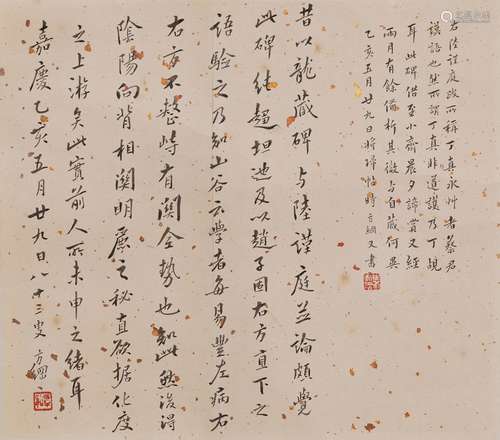 若陸謹庭跋所稱丁真永艸者蔡君
謨語也然所謂丁真非道護乃丁覘
耳此碑借至小齋晨夕諦賞又經
兩月有餘備析其微与自藏何異
乙亥五月廿九日將歸帖時方綱又書
昔以龍藏碑与陸謹庭並論頗覺
此碑純趨坦迤及以趙子固右方直下之
語驗之乃知山谷云學者每易豐左病右
右方不整峙有關全勢也知此然後得
陰陽向背相關明麗之秘直欲據化度
之上游矣此實前人所未申之緒耳
嘉慶乙亥五月廿九日八十三叟方綱